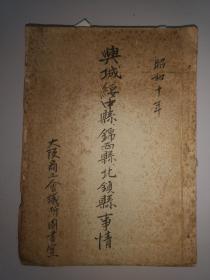 昭和十年
興城綏中縣、錦西縣、北鎮縣事情
大阪商工會議所圖書室